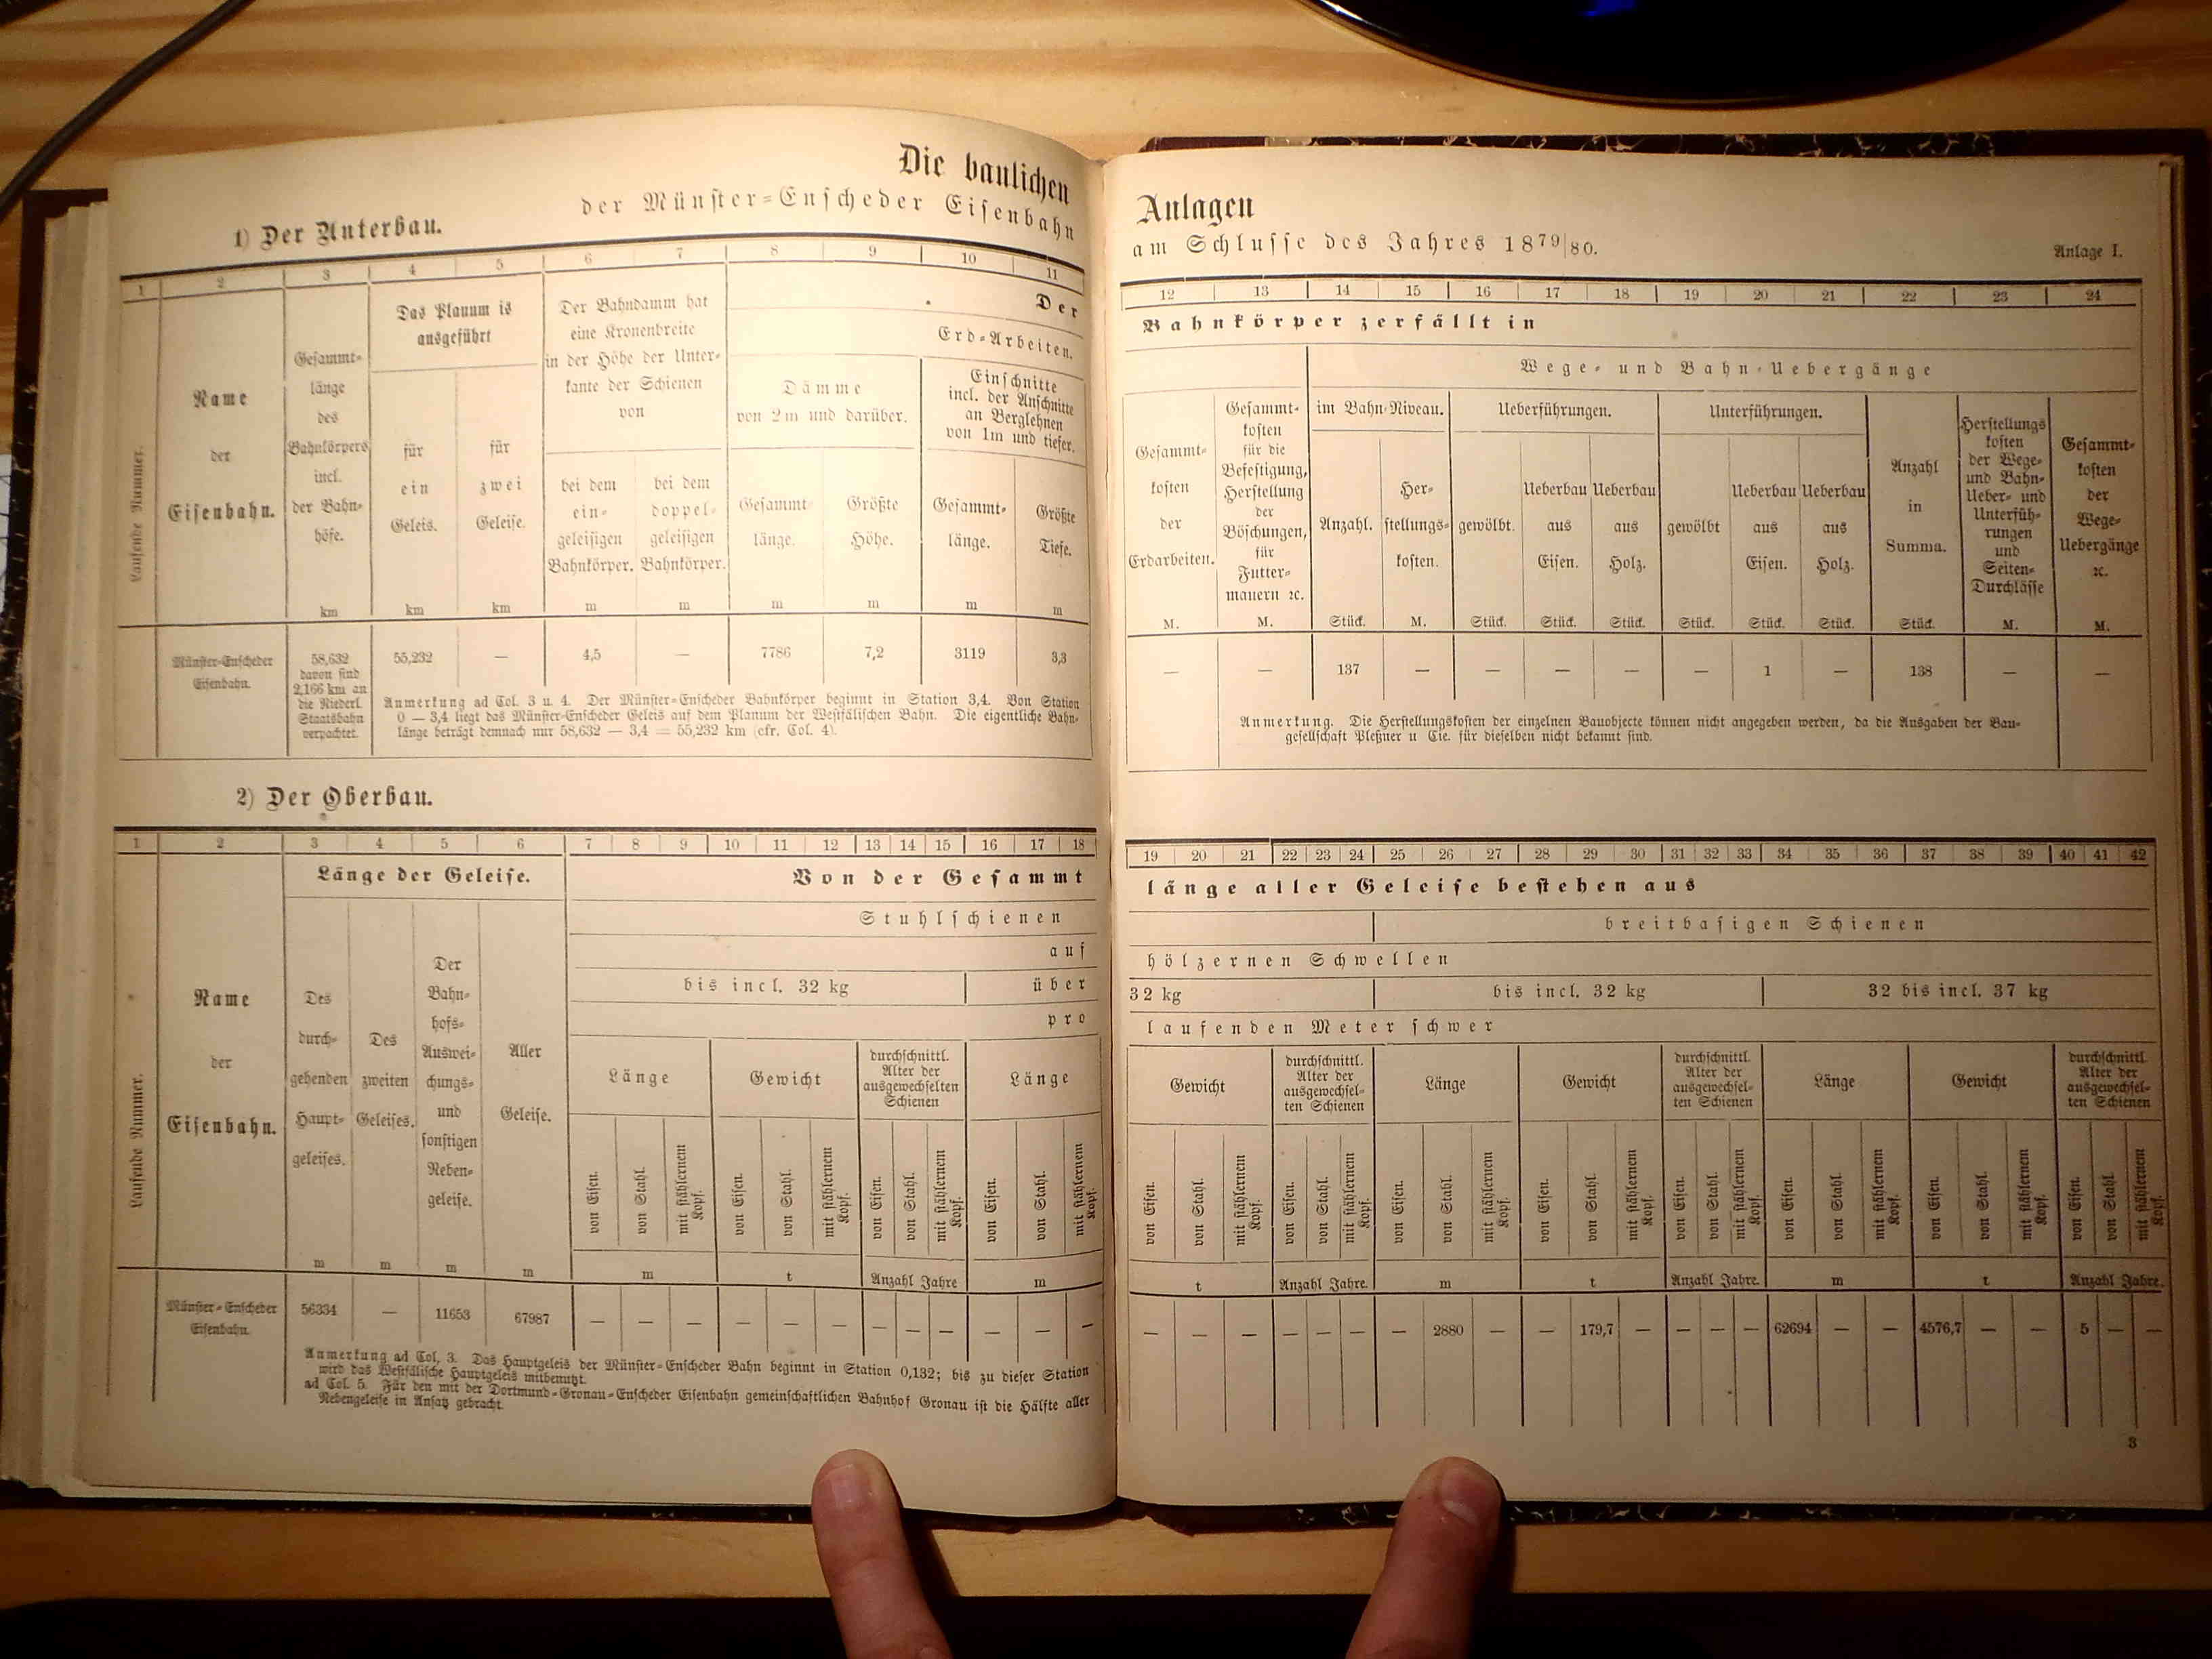 Die baulichen Anlagen
der Münster-Enscheder Eisenbahn am Schlusse des Jahres 1879/80.
Anlage I.
1) Der Unterbau.
1 2 3 4 5 6 7 8 9 10 11 12 13 14 15 16 17 18 19 20 21 22 23 24
Laufende Nummer.
Name
der
Eisenbahn.
Gesammt-
länge
des
Bahnkörpers
incl.
der Bahn-
höfe.
km
Das Planum is
ausgeführt
für
ein
Geleis.
km
für
zwei
Geleise.
km
Der Bahndamm hat
eine Kronenbreite
in der Höhe der Unter-
kante der Schienen
von
bei dem
ein-
geleisigen
Bahnkörper.
m
bei dem
doppel-
geleisigen
Bahnkörper.
m
Der Bahnkörper zerfällt in
Erd-Arbeiten.
Dämme
von 2m und darüber.
Gesammt-
länge.
m
Größte
Höhe.
m
Einschnitte
incl. der Anschnitte
an Berglehnen
von 1m und tiefer.
Gesammt-
länge.
m
Größte
Tiefe.
m
Gesammt-
kosten
der
Erdarbeiten.
M.
Gesammt-
kosten
für die
Befestigung,
Herstellung
der
Böschungen,
für
Futter-
mauern ꝛc.
M.
Wege- und Bahn-Uebergänge
im Bahn-Niveau.
Anzahl.
Stück.
Her-
stellungs-
kosten.
M.
Ueberführungen.
gewölbt.
Stück.
Ueberbau
aus
Eisen.
Stück.
Ueberbau
aus
Holz.
Stück.
Unterführungen.
gewölbt
Stück.
Ueberbau
aus
Eisen.
Stück.
Ueberbau
aus
Holz.
Stück.
Anzahl
in
Summa.
Stück.
Herstellungs
kosten
der Wege-
und Bahn-
Ueber- und
Unterfüh-
rungen
und
Seiten-
Durchlässe
M.
Gesammt-
kosten
der
Wege-
Uebergänge
ꝛc.
M.
Münster-Enscheder
Eisenbahn.
58,632
davon sind
2,166 km an
die Niederl.
Staatsbahn
verpachtet.
55,232 — 4,5 — 7786 7,2 3119 3,3 — — 137 — — — — — 1 — 138 — —
Anmerkung ad Col. 3 u. 4. Der Münster-Enscheder Bahnkörper beginnt in Station 3,4. Von Station
0 — 3,4 liegt das Münster-Enscheder Geleis auf dem Planum der Westfälischen Bahn. Die eigentliche Bahn-
länge beträgt demnach nur 58,632 — 3,4 = 55,232 km (cfr. Col. 4).
Anmerkung. Die Herstellungskosten der einzelnen Bauobjecte können nicht angegeben werden, da die Ausgaben der Bau-
gesellschaft Pleßner u Cie. für dieselben nicht bekannt sind.
2) Der Oberbau.
1 2 3 4 5 6 7 8 9 10 11 12 13 14 15 16 17 18 19 20 21 22 23 24 25 26 27 28 29 30 31 32 33 34 35 36 37 38 39 40 41 42
Laufende Nummer.
Name
der
Eisenbahn.
Länge der Geleise.
Des
durch-
gehenden
Haupt-
geleises.
m
Des
zweiten
Geleises.
m
Der
Bahn-
hofs-
Auswei-
chungs-
und
sonstigen
Neben-
geleise.
m
Aller
Geleise.
m
Von der Gesammtlänge aller Geleise bestehen aus
Stuhlschienen
breitbasigen Schienen
auf hölzernen Schwellen
bis incl. 32 kg
über 32 kg
bis incl. 32 kg
32 bis incl. 37 kg
pro laufenden Meter schwer
Länge
von Eisen.
von Stahl.
mit stählernem Kopf.
m
Gewicht
von Eisen.
von Stahl.
mit stählernem Kopf.
t
durchschnittl.
Alter der
ausgewechselten
Schienen
von Eisen.
von Stahl.
mit stählernem Kopf.
Anzahl Jahre
Länge
von Eisen.
von Stahl.
mit stählernem Kopf.
m
Gewicht
von Eisen.
von Stahl.
mit stählernem Kopf.
t
durchschnittl.
Alter der
ausgewechsel-
ten Schienen
von Eisen.
von Stahl.
mit stählernem Kopf.
Anzahl Jahre.
Länge
von Eisen.
von Stahl.
mit stählernem Kopf.
m
Gewicht
von Eisen.
von Stahl.
mit stählernem Kopf.
t
durchschnittl.
Alter der
ausgewechsel-
ten Schienen
von Eisen.
von Stahl.
mit stählernem Kopf.
Anzahl Jahre.
Länge
von Eisen.
von Stahl.
mit stählernem Kopf.
m
Gewicht
von Eisen.
von Stahl.
mit stählernem Kopf.
t
durchschnittl.
Alter der
ausgewechsel-
ten Schienen
von Eisen.
von Stahl.
mit stählernem Kopf.
Anzahl Jahre.
Münster-Enscheder
Eisenbahn.
56334 — 11653 67987 — — — — — — — — — — — — — — — — — — — 2880 — — 179,7 — — — — 62694 — — 4576,7 — — 5 — —
Anmerkung ad Col. 3. Das Hauptgeleis der Münster-Enscheder Bahn beginnt in Station 0,132; bis zu dieser Station
wird das Westfälische Hauptgeleis mitbenutzt.
ad Col. 5. Für den mit der Dortmund-Gronau-Enscheder Eisenbahn gemeinschaftlichen Bahnhof Gronau ist die Hälfte aller
Nebengeleise in Ansatz gebracht.
3